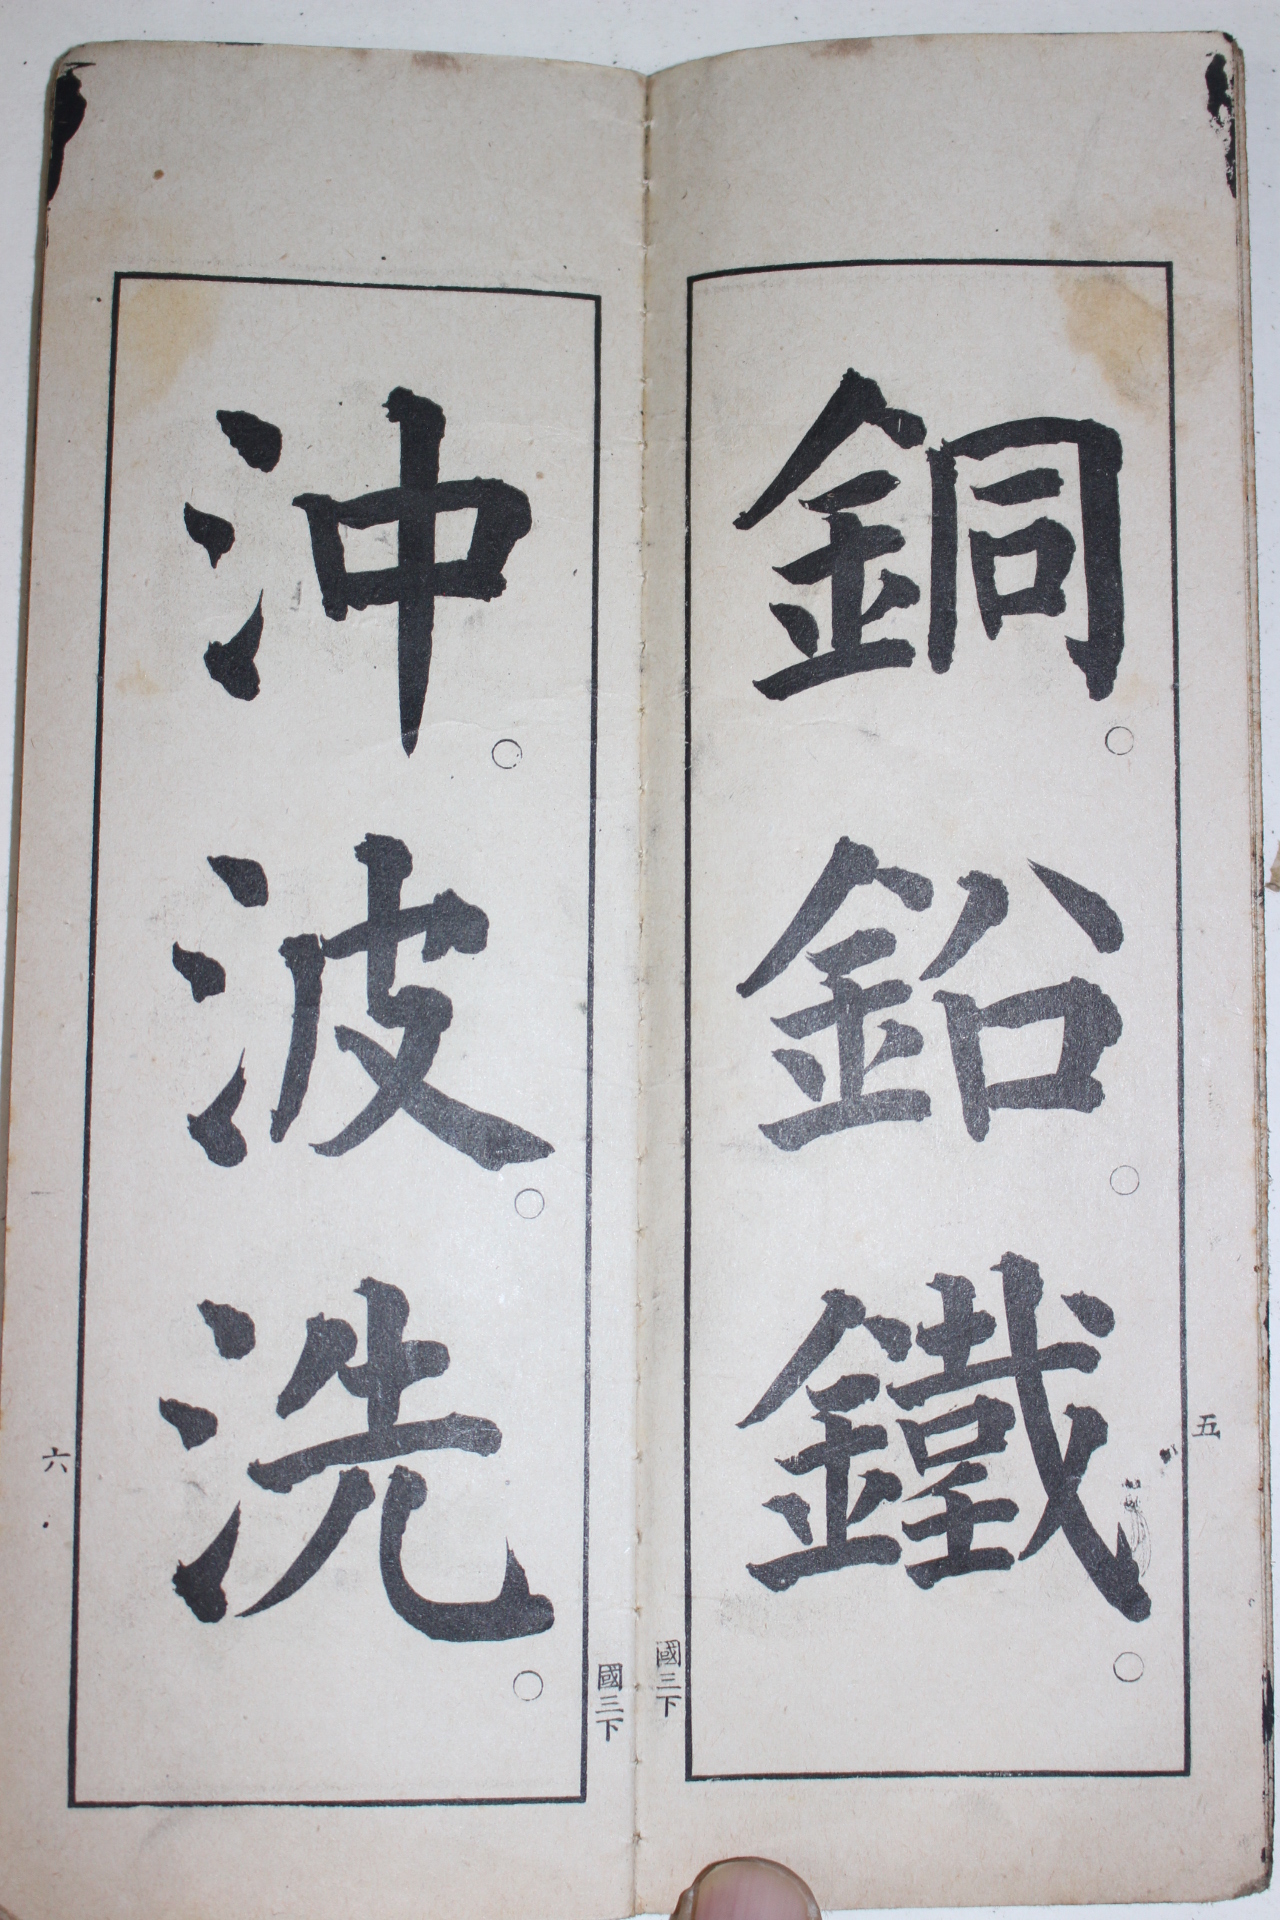 銅○鉛○鐵○
五
國三下
沖○波○洗○
六
國三下